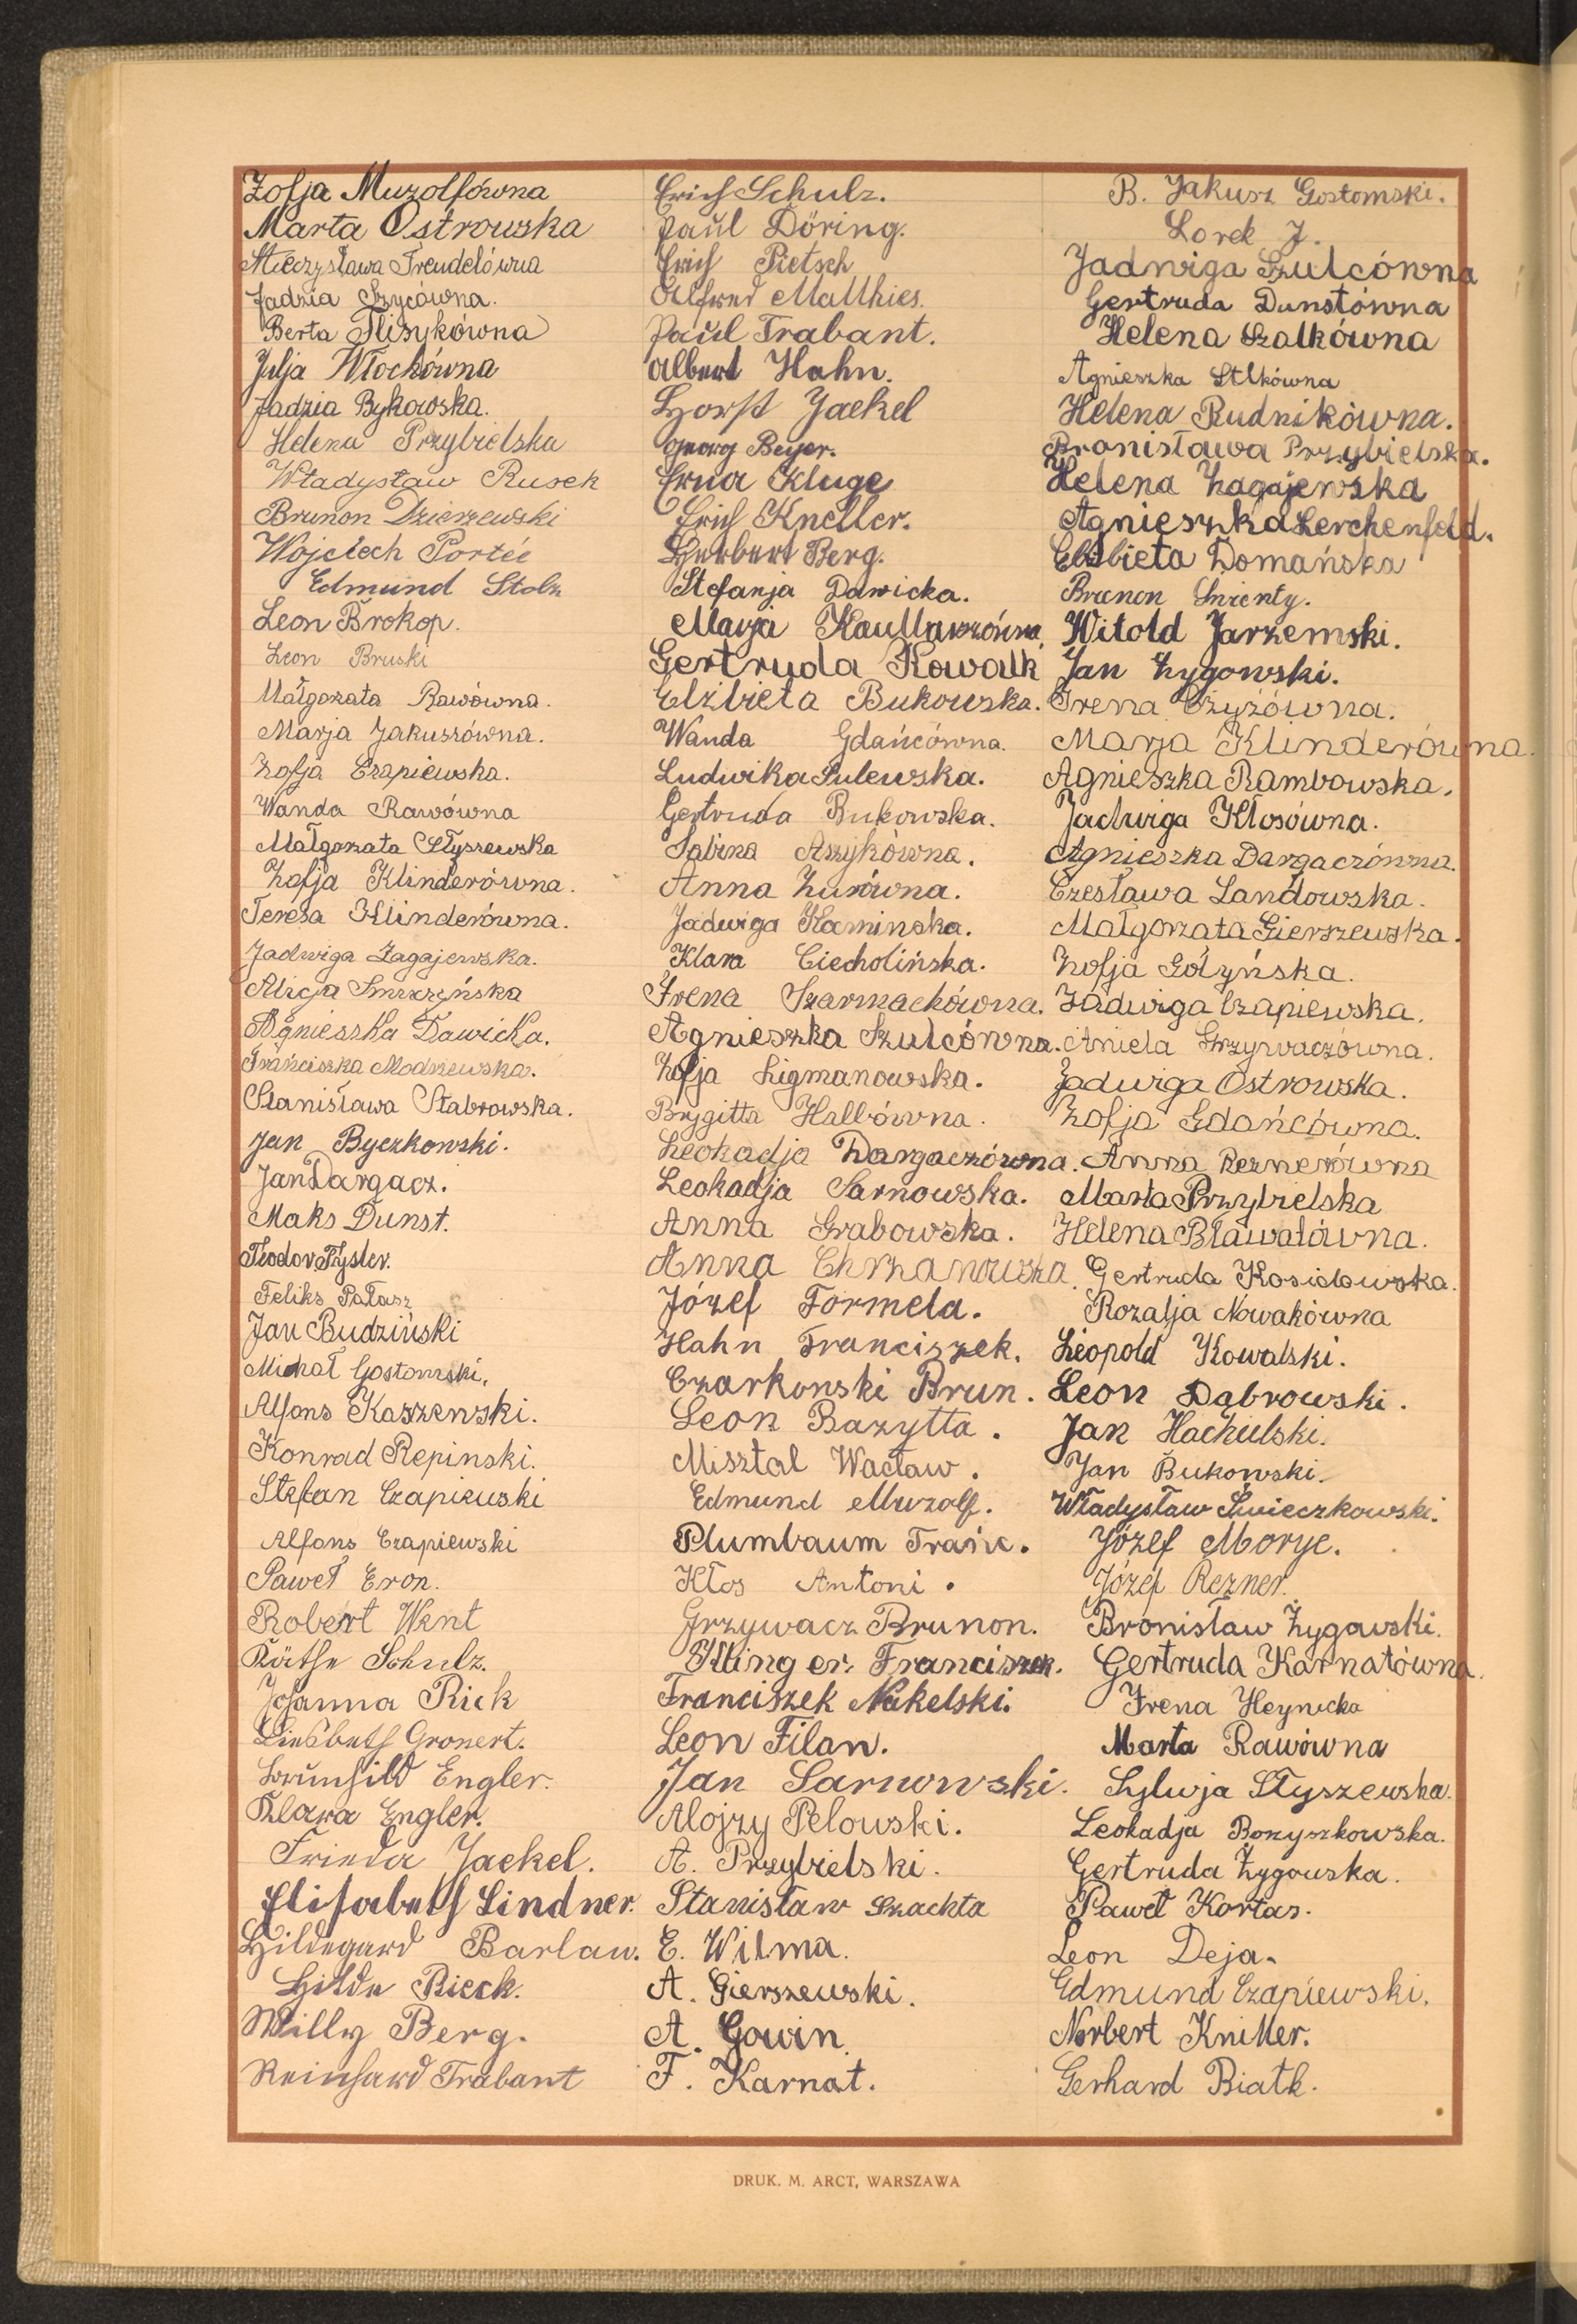 Zofja Muzolfówna
Marta Ostrowska
Mieczysława Treudelówna
Jadzia Szycówna.
Berta Flisykówna
Julja Włochówna
Jadzia Bykowska.
Helena Przybielska
Władysław Rusek
Brunon Dzierzewski
Wojciech Portée
Edmund Stolz
Leon Brokop.
Leon Bruski
Małgorzata Rawówna.
Marja Jakuszówna.
Zofja Czapiewska.
Wanda Rawówna
Małgorzata Słyszewska
Zofja Klinderówna.
Teresa Klinderówna.
Jadwiga Zagajewska.
Alicja
Agnieszka Dawicka.
Franciszka Modrzewska.
Stanisława Stabrowska.
Jan Byczkowski.
Jan Dargacz.
Maks Dunst.
Teodor
Feliks Pałasz
Jan Budziński
Michał Gostomski.
Alfons Kaszewski.
Konrad Repinski.
Stefan Czapiewski
Alfons Czapiewski
Paweł Eron.
Robert Went
Käthe Schulz.
Johanna Rick
Liesbeth Gronert.
Brünhild Engler.
Klara Engler.
Frieda Jaekel.
Elisabeth Lindner.
Hildegard Barlau.
Hilde Rieck.
Willy Berg.
Reinhard Trabant
Erich Schulz.
Paul Döring.
Erich Pietsch
Alfred Matthies.
Paul Trabant.
Albert Hahn.
Horst Jaekel
Georg Beyer.
Erna Kluge
Erich Kneller.
Herbert Berg.
Stefanja Dawicka.
Marja
Gertruda Kowalk
Elżbieta Bukowska.
Wanda Gdańcówna.
Ludwika Sulewska.
Gertruda Bukowska.
Sabina Aszykówna.
Anna Żurówna.
Jadwiga Kaminska.
Klara Ciecholińska.
Irena Szarmachówna.
Agnieszka Szulcówna.
Zofja Ligmanowska.
Brygitta Halbówna.
Leokadja Dargaczówna.
Leokadja Sarnowska.
Anna Grabowska.
Anna Chrzanowska
Józef Formela.
Hahn Franciszek.
Czarkowski Brun.
Leon Bazytta.
Misztal Wacław.
Edmund Muzolf.
Plumbaum Franc.
Kłos Antoni.
Grzywacz Brunon.
Klinger Franciszek.
Franciszek Nakelski.
Leon Filan.
Jan Sarnowski.
Alojzy Pelowski.
A. Przybielski.
Stanisław Szachta
E. Wilma.
A. Gierszewski.
A. Gowin.
F. Karnat.
B. Jakusz Gostomski.
Lorek J.
Jadwiga Szulcówna
Gertruda Dunstówna
Helena Szalkówna
Agnieszka
Helena Rudnikówna.
Bronisława Przybielska.
Helena Zagajewska
Agnieszka Lerchenfeld.
Elżbieta Domańska
Brunon Smienty.
Witold Jarzemski.
Jan Żygowski.
Irena Czyżówna.
Marja Klinderówna.
Agnieszka Rambowska.
Jadwiga Kłosówna.
Agnieszka Dargaczówna.
Czesława Landowska.
Małgorzata Gierszewska.
Zofja Gółyńska.
Jadwiga Czapiewska.
Aniela Grzywaczówna.
Jadwiga Ostrowska.
Zofja Gdańcówna.
Anna Reznerówna
Marta Przybielska
Helena Bławatówna.
Gertruda Kosidowska.
Rozalja Nowakówna
Leopold Kowalski.
Leon Dąbrowski.
Jan Hachulski.
Jan Bukowski.
Władysław Świeczkowski.
Józef Moryc.
Józef Rezner.
Bronisław Żygowski.
Gertruda Karnatówna.
Irena Heynicka
Marta Rawówna
Sylwja Słyszewska.
Leokadja Borzyszkowska.
Gertruda Żygowska.
Paweł Kortas.
Leon Deja.
Edmund Czapiewski.
Norbert Kniller.
Gerhard Białk.
DRUK. M. ARCT, WARSZAWA